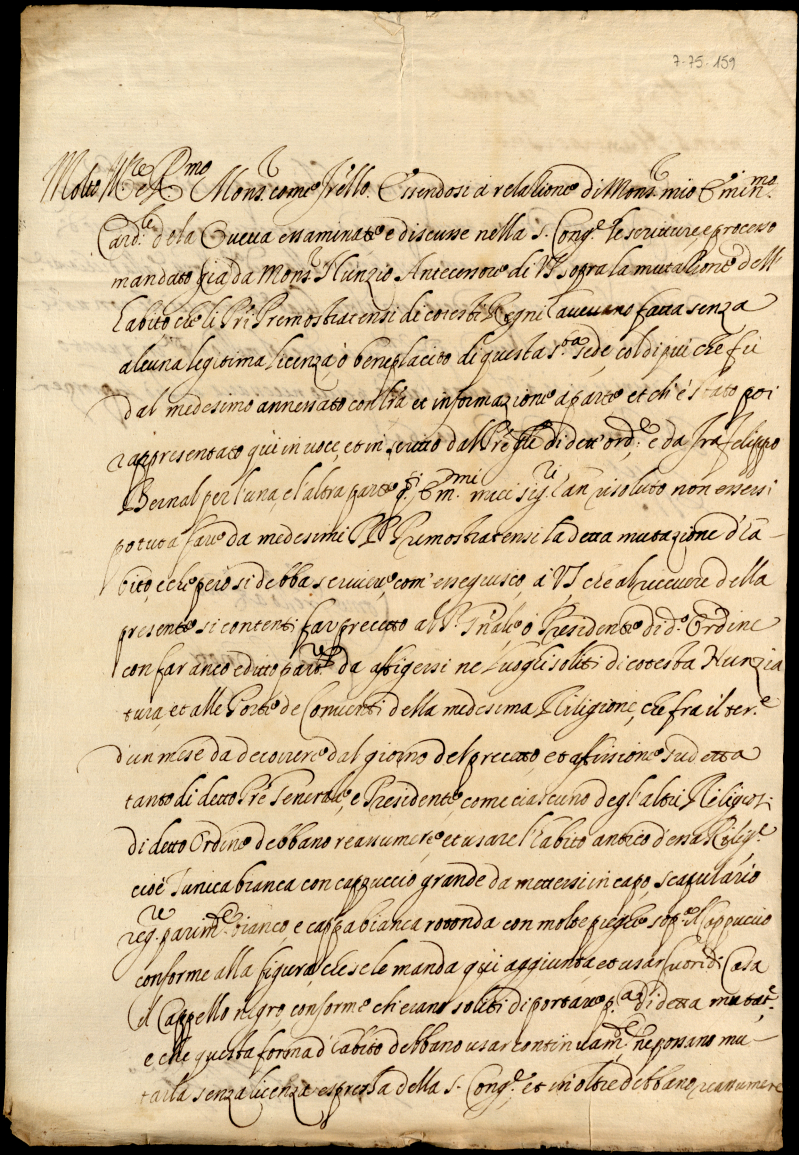 7-75-159
Molto Ill.re e R.mo Mons.r come fr͂ello. Essendosi à relatione di Mons.r mio Emin.mo
Card.le dela Cueva essaminate, e discusse nella s. Cong.e le scritture, e processo
mandato già da Mons.r Nunzio Antecessore di VS sopra la mutatione dell'
habito che li Pri Premostratensi di cotesti Regni havevano fatta senza
alcuna legitima licenza ò beneplacito di questa s.ta sede, col di più che fù
dal medesimo annessato con l'rã et informazione à parte et ch'è stato poi
rappresentato qui in voce, et in scritto dal Prê Gñle di dett'ord.e e da fra Filippo
Bernal per l'una, e l'altra parte q.sti Em.mi miei sig.ri han risoluto non essersi
potuta fare da medesimi PP Premostratensi la detta mutazione d'ha-
bito, e che però si debba scrivere, com'esseguisco, à VS che al ricevere della
presente si contenti far precetto al P. Gñale ò Presidente di d.o Ordine
con far anco editto da affigersi ne luoghi soliti di cotesta Nunzia
tura, et alle Porte de Conventi della medesima Religione, che fra il ter.e
d'un mese da decorrere dal giorno del precetto, et affissione sudetta
tanto di detto Prê Generale, e Presidente, come ciascuno degl'altri Religiosi
di detto Ordine debbano reassumere, et usare l'habito antico d'essa Relig.e
cioè Tunica bianca con cappuccio grande da mettersi in capo, scapulario
reg.re parim.te bianco e cappa bianca rotonda con molte pieghe sop.a il cappuccio
conforme alla figura, che se le manda qui aggiunta, et usar fuori di Casa
il Cappello negro, conforme ch'erano soliti di portare p.a di detta mutat.e
e che questa forma d'habito debbano usar continuam.te ne possano mu-
tarla senza licenza espressa della s. Cong.e et in oltre debbano reassumere